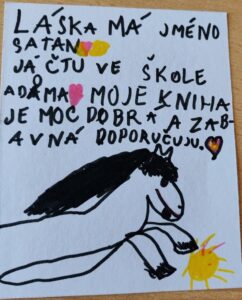 LÁSKA MÁ JMÉNO
SATAN
JÁ ČTU VE ŠKOLE
ADÁMA MOJE KNIHA
JE MOC DOBRÁ A ZAB-
AVNÁ DOPORUČUJU.